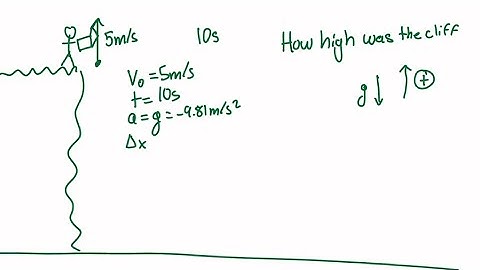 5m/s
10s
How high was the cliff
V₀ = 5m/s
t = 10s
a = g = -9.81m/s²
Δx
g↓ ↑⊕